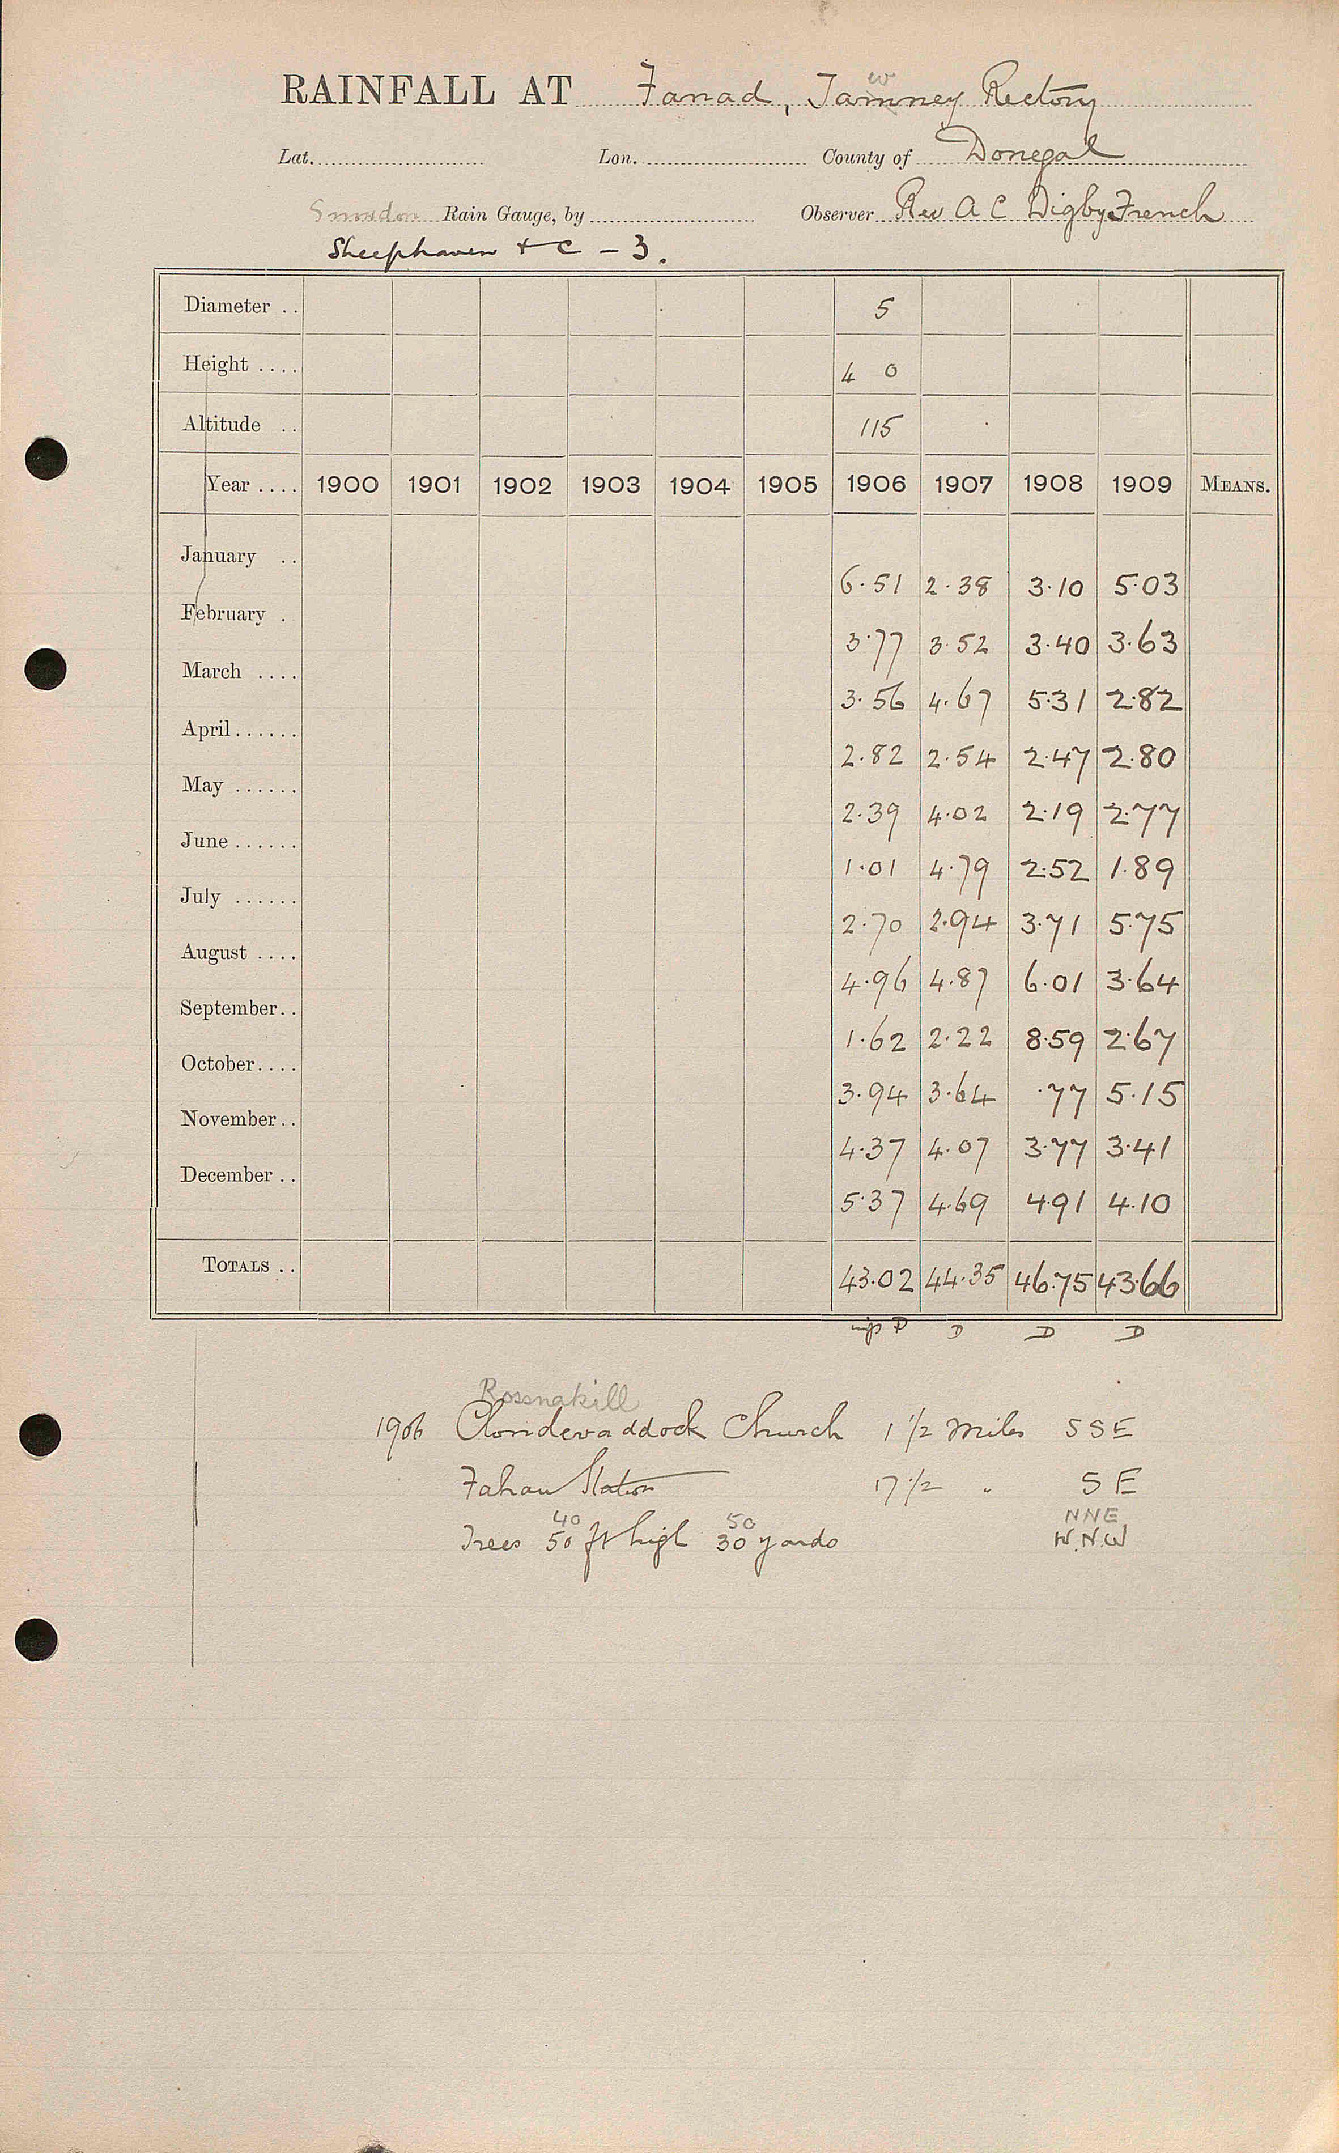 RAINFALL AT Fanad, Tamney Rectory
w
Lat. Lon. County of Donegal
Snowdon Rain Gauge, by Observer Rev A C Digby French
Sheephaven & C - 3.
Diameter .. 5
Height .... 4 0
Altitude .. 115
Year .... 1900 1901 1902 1903 1904 1905 1906 1907 1908 1909 MEANS.
January .. 6.51 2.38 3.10 5.03
February . 3.77 3.52 3.40 3.63
March .... 3.56 4.67 5.31 2.82
April...... 2.82 2.54 2.47 2.80
May ...... 2.39 4.02 2.19 2.77
June ...... 1.01 4.79 2.52 1.89
July ...... 2.70 2.94 3.71 5.75
August .... 4.96 4.87 6.01 3.64
September.. 1.62 2.22 8.59 2.67
October.... 3.94 3.64 .77 5.15
November.. 4.37 4.07 3.77 3.41
December .. 5.37 4.69 4.91 4.10
TOTALS .. 43.02 44.35 46.75 43.66
D D D D
Rossnakill
1906 Clondevaddock Church 1 1/2 miles SSE
Fahan Station 17 1/2 " SE
40 50 NNE
Trees 50 ft high 30 yards W.N.W